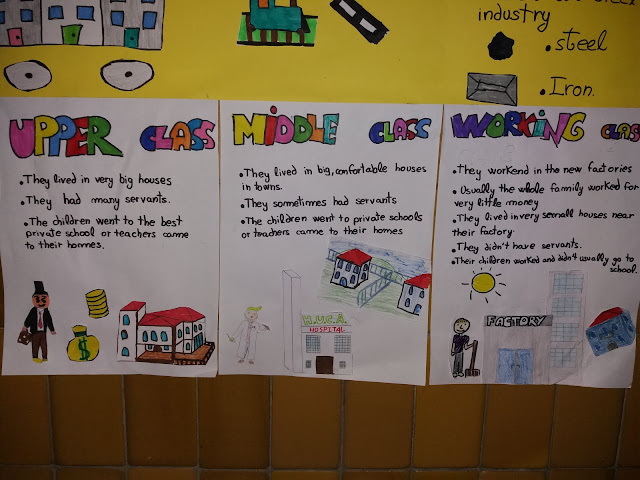 industry
•steel
•Iron.
UPPER CLASS
•They lived in very big houses
•They had many servants.
•The children went to the best
private school or teachers came
to their hommes.
MIDDLE CLASS
•They lived in big, confortable houses
in towns.
•They sometimes had servants
•The children went to private schools
or teachers came to their homes
H.U.C.A.
HOSPITAL
WORKING CLAS
•They workend in the new factories
•Usually the whole family worked for
very little money
•They lived in very semall houses near
their factory
•They didn't have servants.
•Their children worked and didn't usually go to
school.
FACTORY